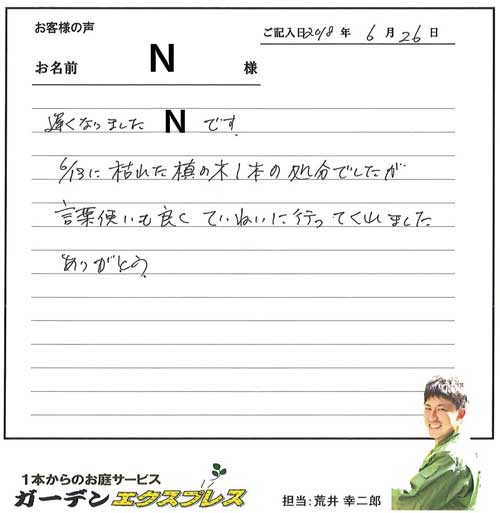 お客様の声
ご記入日2018年 6月26日
お名前 N 様
遅くなりました N です.
6/13に枯れた槙の木1本の処分でしたが
言葉使いも良くていねいに行ってくれました
ありがとう.
1本からのお庭サービス
ガーデンエクスプレス
担当:荒井 幸二郎